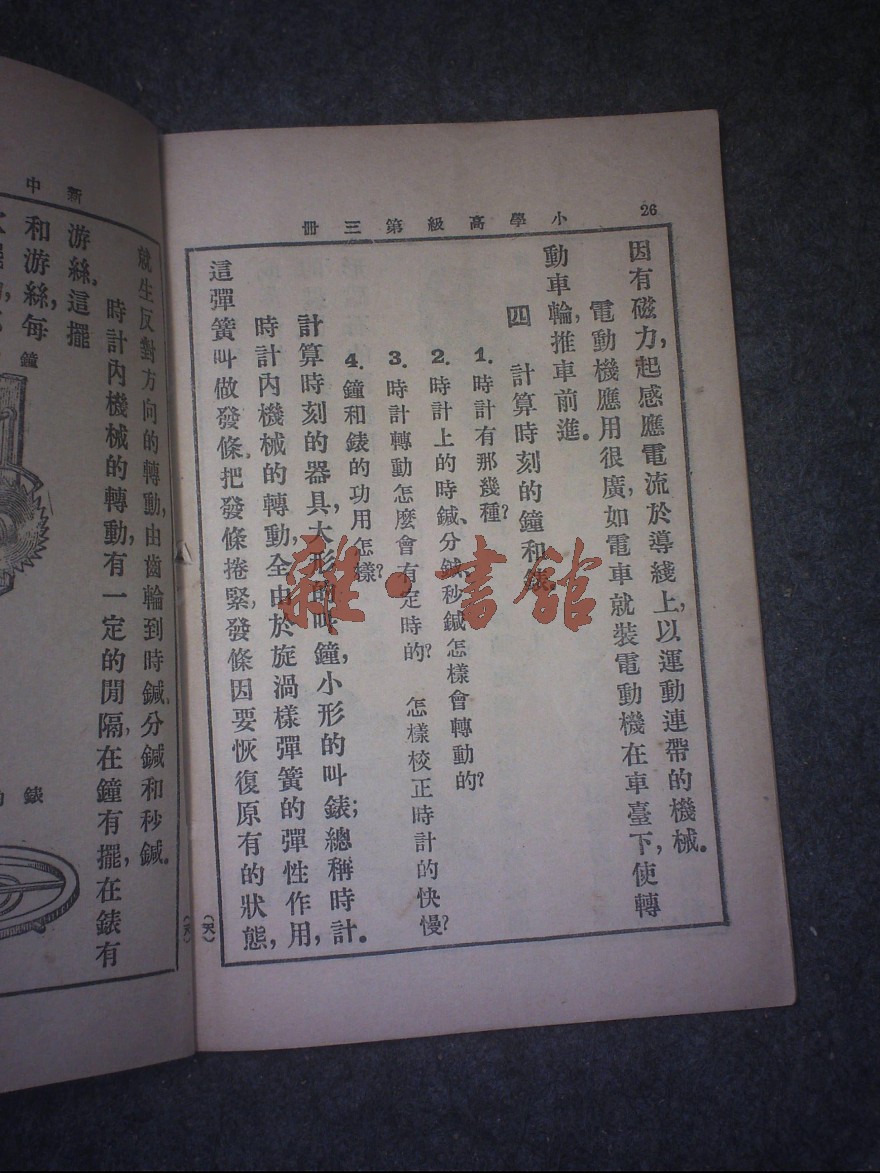 小學高級第三冊
26
因有磁力，起感應電流於導綫上，以運動連帶的機械。
電動機應用很廣，如電車就裝電動機在車臺下，使轉
動車輪，推車前進。
四　計算時刻的鐘和錶
1. 時計有那幾種？
2. 時計上的時鍼、分鍼秒鍼怎樣會轉動的？
3. 時計轉動怎麼會有定時的？　怎樣校正時計的快慢？
4. 鐘和錶的功用怎樣？
計算時刻的器具，大形的叫鐘，小形的叫錶；總稱時計。
時計內機械的轉動，全由於旋渦樣彈簧的彈性作用，
這彈簧叫做發條。把發條捲緊，發條因要恢復原有的狀態，
（天）
新中
就生反對方向的轉動，由齒輪到時鍼、分鍼和秒鍼。
時計內機械的轉動，有一定的閒隔，在鐘有擺，在錶有
游絲。這擺
和游絲，每
鐘
錶
（天）
雜·書館